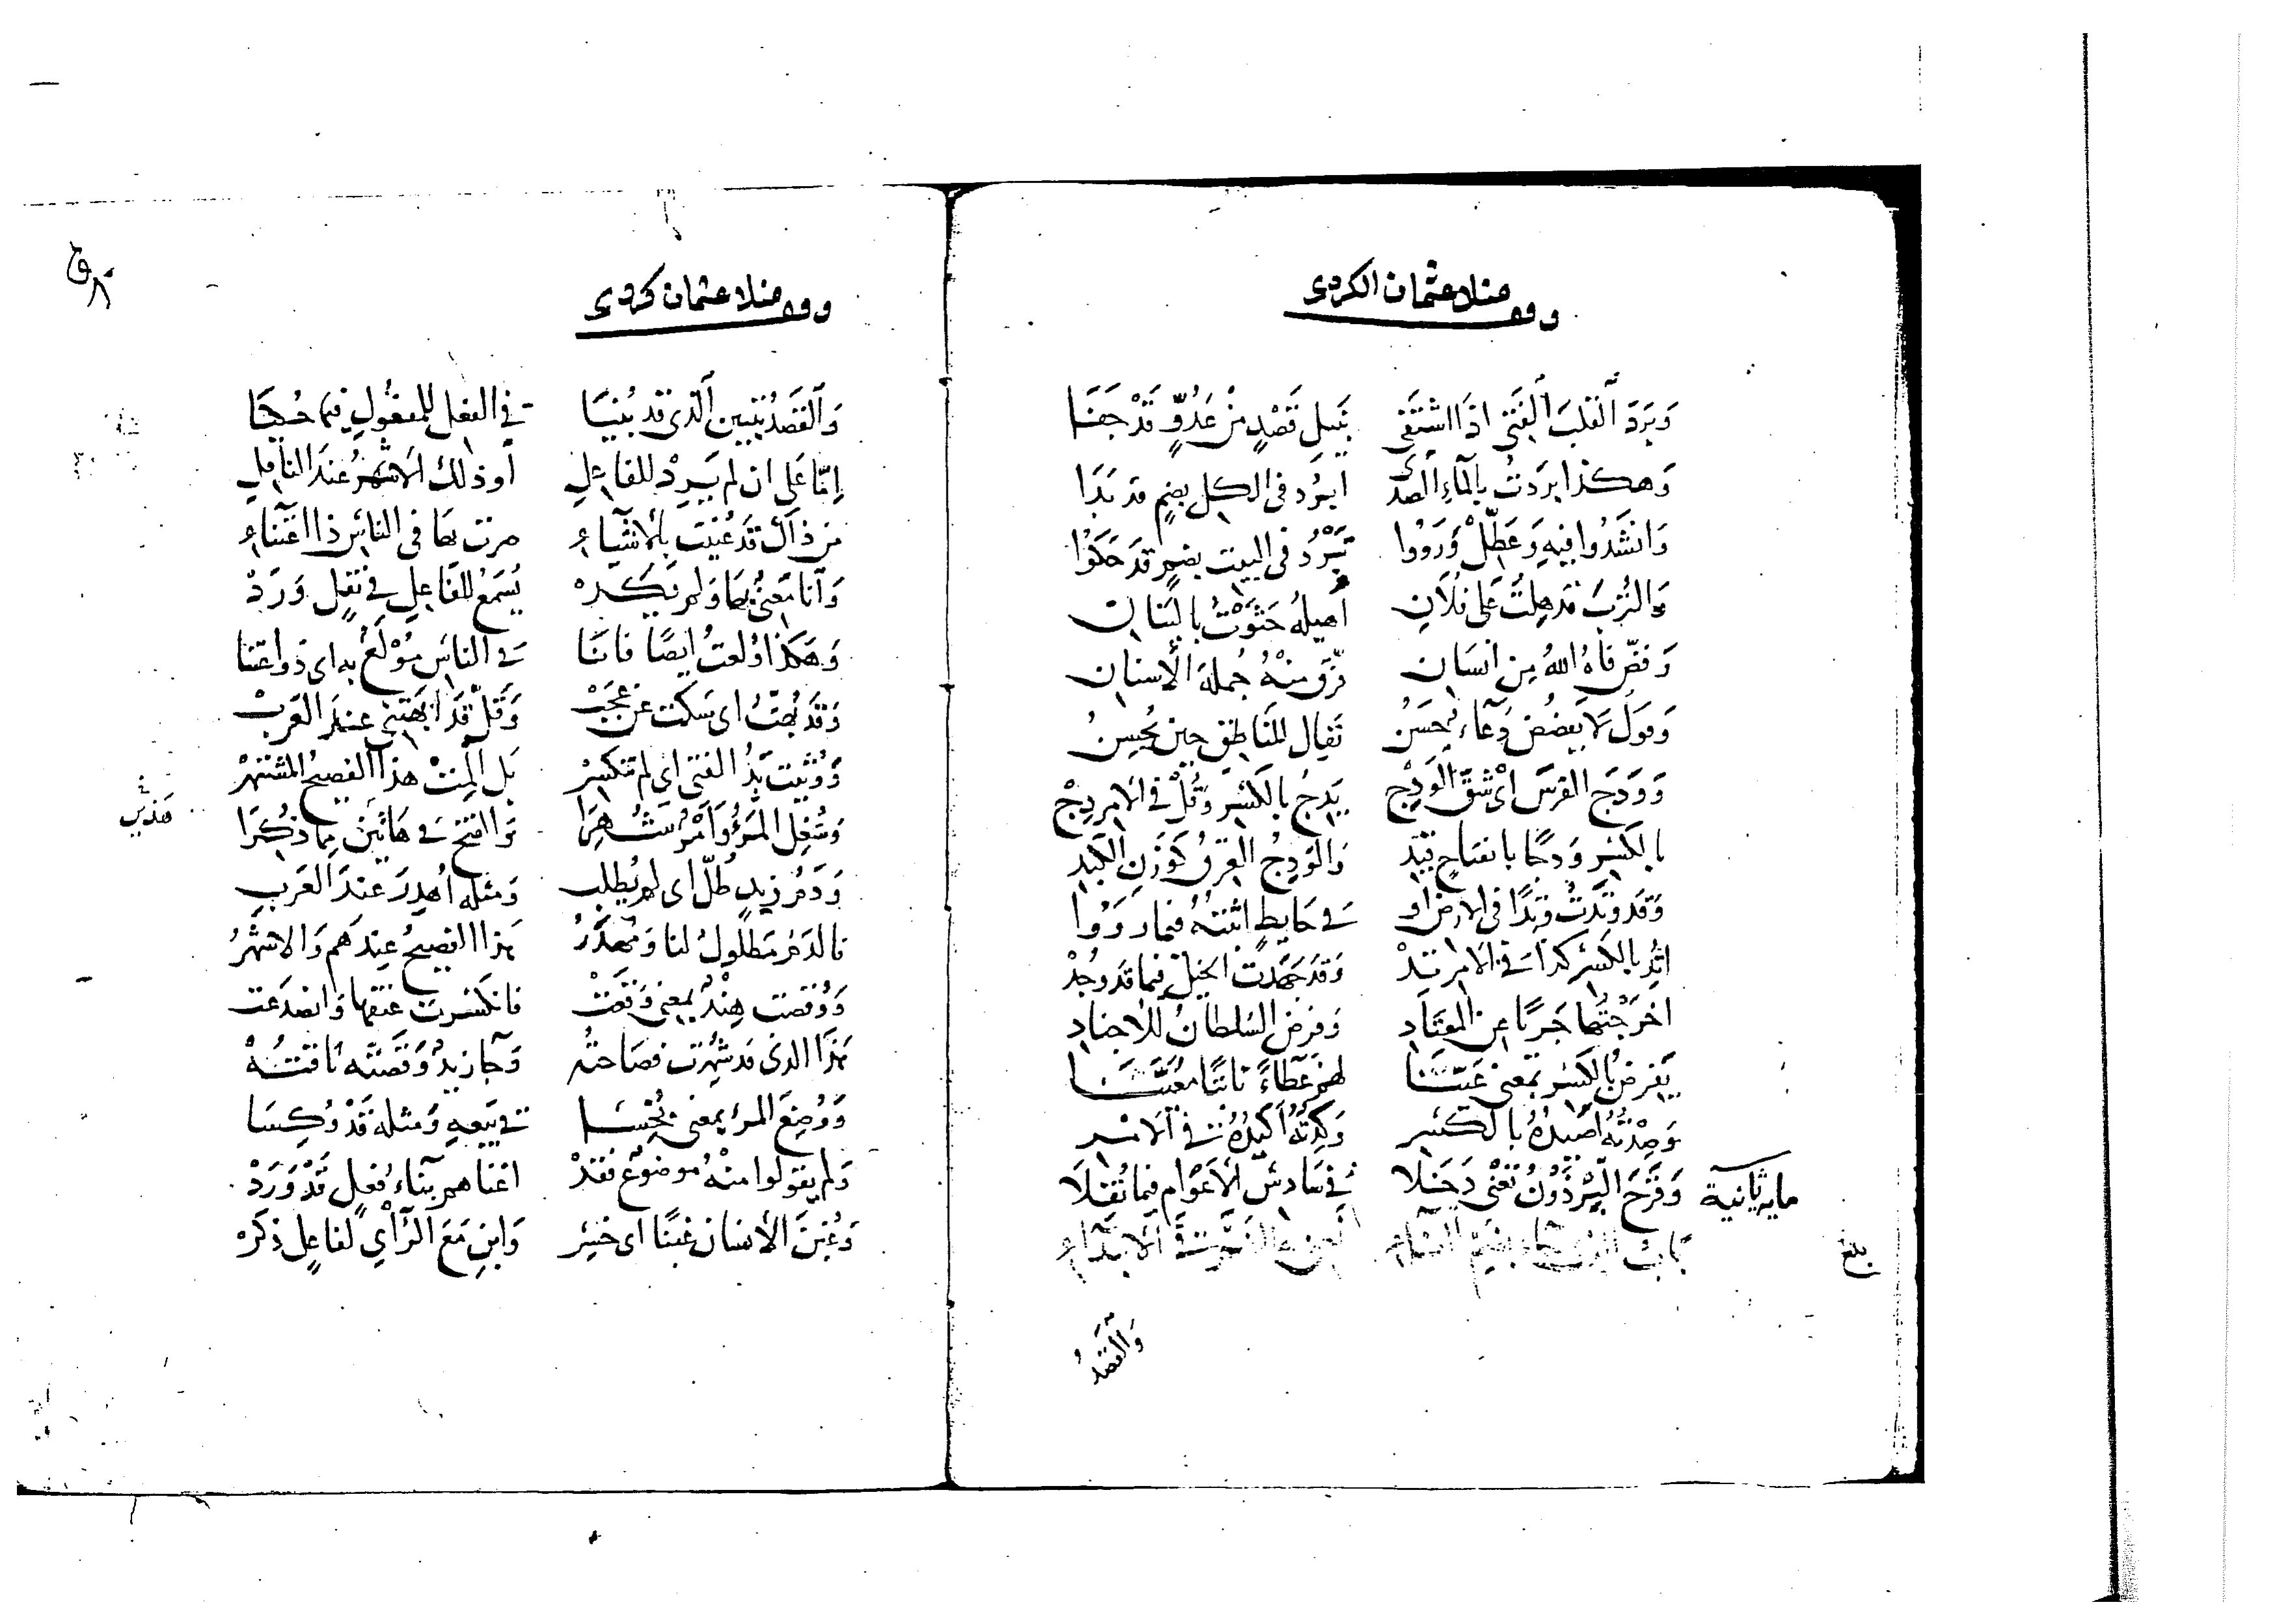 وقف منلا عثمان الكردى
وَبَرَدَ القلبَ الفتى اذا اشتفى بنيل قَصْدٍ من عَدُوٍّ قَدْ جَفَا
وَهكذا بردتُ بالماءِ الصدى ابرُد فى الكل بضمٍ قد بَدَا
وَانشدُوا فيهِ وَعَطِّلْ وَرَوَوا تَبْرُد فى البيت بضمٍ قد حَكَوْا
وَالتُرب قد هِلتُ على فلانِ اهيلهُ حَثَوْتُ بالبَنانِ
وَفضّ فاهُ اللهُ من انسان فرّق منهُ جُملة الاسنان
وَقولَ لا يَفضُض دعآء يحسُنُ تقال للناطق حين يُحسِنُ
وَوَدَج الفرسَ اىْ شقّ الوَدِج يَدِجُ بالكَسْر وقُلْ فى الامر دِجْ
بالكسر وَدجًا بانفتاحٍ قيّد وَالوَدِجُ العِرقُ كوَزنِ الكَبِدِ
وَقد وتِدتُ وَتِدًا فى الارض او فى حايطٍ اثبتهُ فيما روَوْا
اتِدُ بالكسْر كذا فى الامر تِدْ وَقد جَهَدت الخيل فيما قد وُجِدْ
اخرَجْتُها جَريًا عن المعتادِ وَفرض السُلطانُ للاجنادِ
يَفرضُ بالكسْر بمعنى عَيّنا لهم عَطاءً ثابتًا مُعَيَّنا
وَصِدْتُهُ اصيدُهُ بالكسْر وَكِدتُهُ اكيدُهُ فى الامْر
مايه ثانية وَقَرَحَ البِرْذَوْنُ تَعْنى دَخَلا فى سَادس الاعْوام فيما نُقلا
بابُ
بلغ
وَالقَصدُ
وقف منلا عثمان كردى
وَالقَصدُ تبيين الذى قد بُنيَا فى الفعل للمفعُولِ فيما حُكيَا
إمّا على ان لم يَرِدْ للفاعلِ أو ذلك الاشهرُ عند الناقلِ
من ذاك قد عُنيت بالاشياءِ صرت بها فى الناس ذا اعتناءِ
وَأنا مَعنىٌّ بها وَلم يكدْ يُسمَعُ للفاعِلِ فى نقلٍ وَرَدْ
وَهكذا اولعتُ ايضًا فانّا فى الناس مُوْلَعٌ به اى ذو اعتنا
وَقد بُهتُ اى سَكت عن عَجَبْ وَقَلّ قد ابهتنى عند العَرَبْ
وَوُثِيت يَدُ الفتى اى لم تنكسِرْ بل المت هذا الفصيحُ المشتهِرْ
وَشُغِل المَرْءُ وَأمْرٌ شُهِرَا وَالفتح فى هاتين مما ذُكِرَا
هَذين
وَدَمُ زيدٍ طُلّ اى لم يُطلبِ وَمثله اُهدِرَ عندَ العَربِ
فالدَم مَطلولٌ لنا وَمُهدَرُ هذا الفصيحُ عندهم وَالاشهَرُ
وَوُقصت هِندٌ بمعنى وَقَعَتْ فانكسَرت عنقها وَانصدَعت
هذا الذى قد شُهرت فصاحتُه وَجا زيدٌ وَقَصَته ناقتُهْ
وَوُضِعَ المرءُ بمعنى بُخِسَا فى بيعِهِ وَمثله قَدْ وُكِسَا
وَلم يقولوا منْهُ موضوعٌ فقدْ اغناهم بناءُ فُعِلٍ قَدْ وَرَدْ
وَغُبِنَ الانسان غبنًا اى خَسِر وَابنِ مَعَ الرَأْيِ لفاعِلٍ ذكره